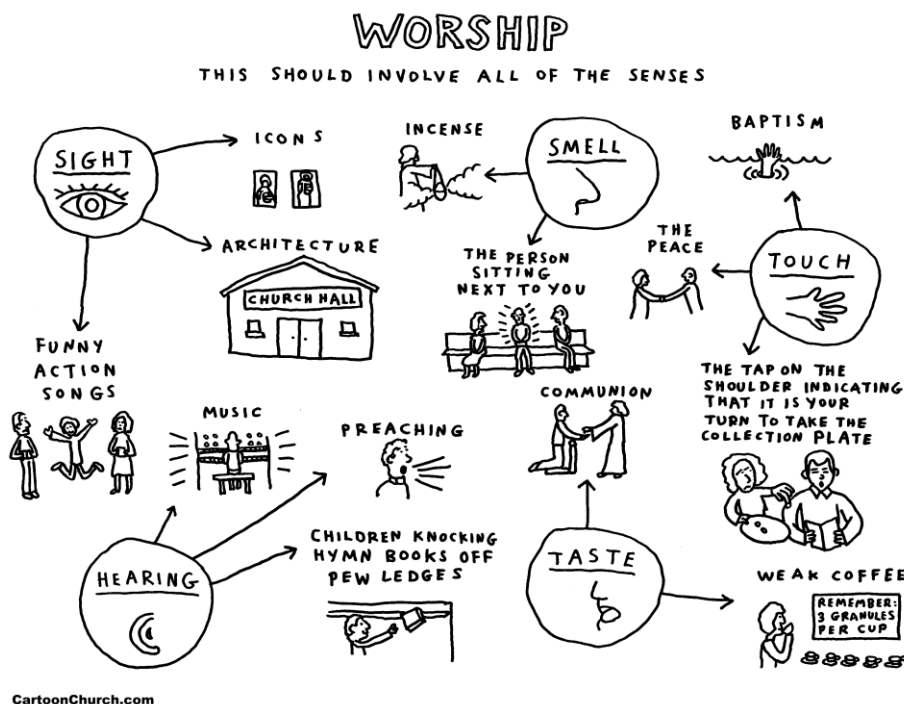 WORSHIP
THIS SHOULD INVOLVE ALL OF THE SENSES
SIGHT
ICONS
ARCHITECTURE
CHURCH HALL
FUNNY
ACTION
SONGS
SMELL
INCENSE
THE PERSON
SITTING
NEXT TO YOU
TOUCH
BAPTISM
THE
PEACE
THE TAP ON THE
SHOULDER INDICATING
THAT IT IS YOUR
TURN TO TAKE THE
COLLECTION PLATE
HEARING
MUSIC
PREACHING
CHILDREN KNOCKING
HYMN BOOKS OFF
PEW LEDGES
TASTE
COMMUNION
WEAK COFFEE
REMEMBER:
3 GRANULES
PER CUP
CartoonChurch.com